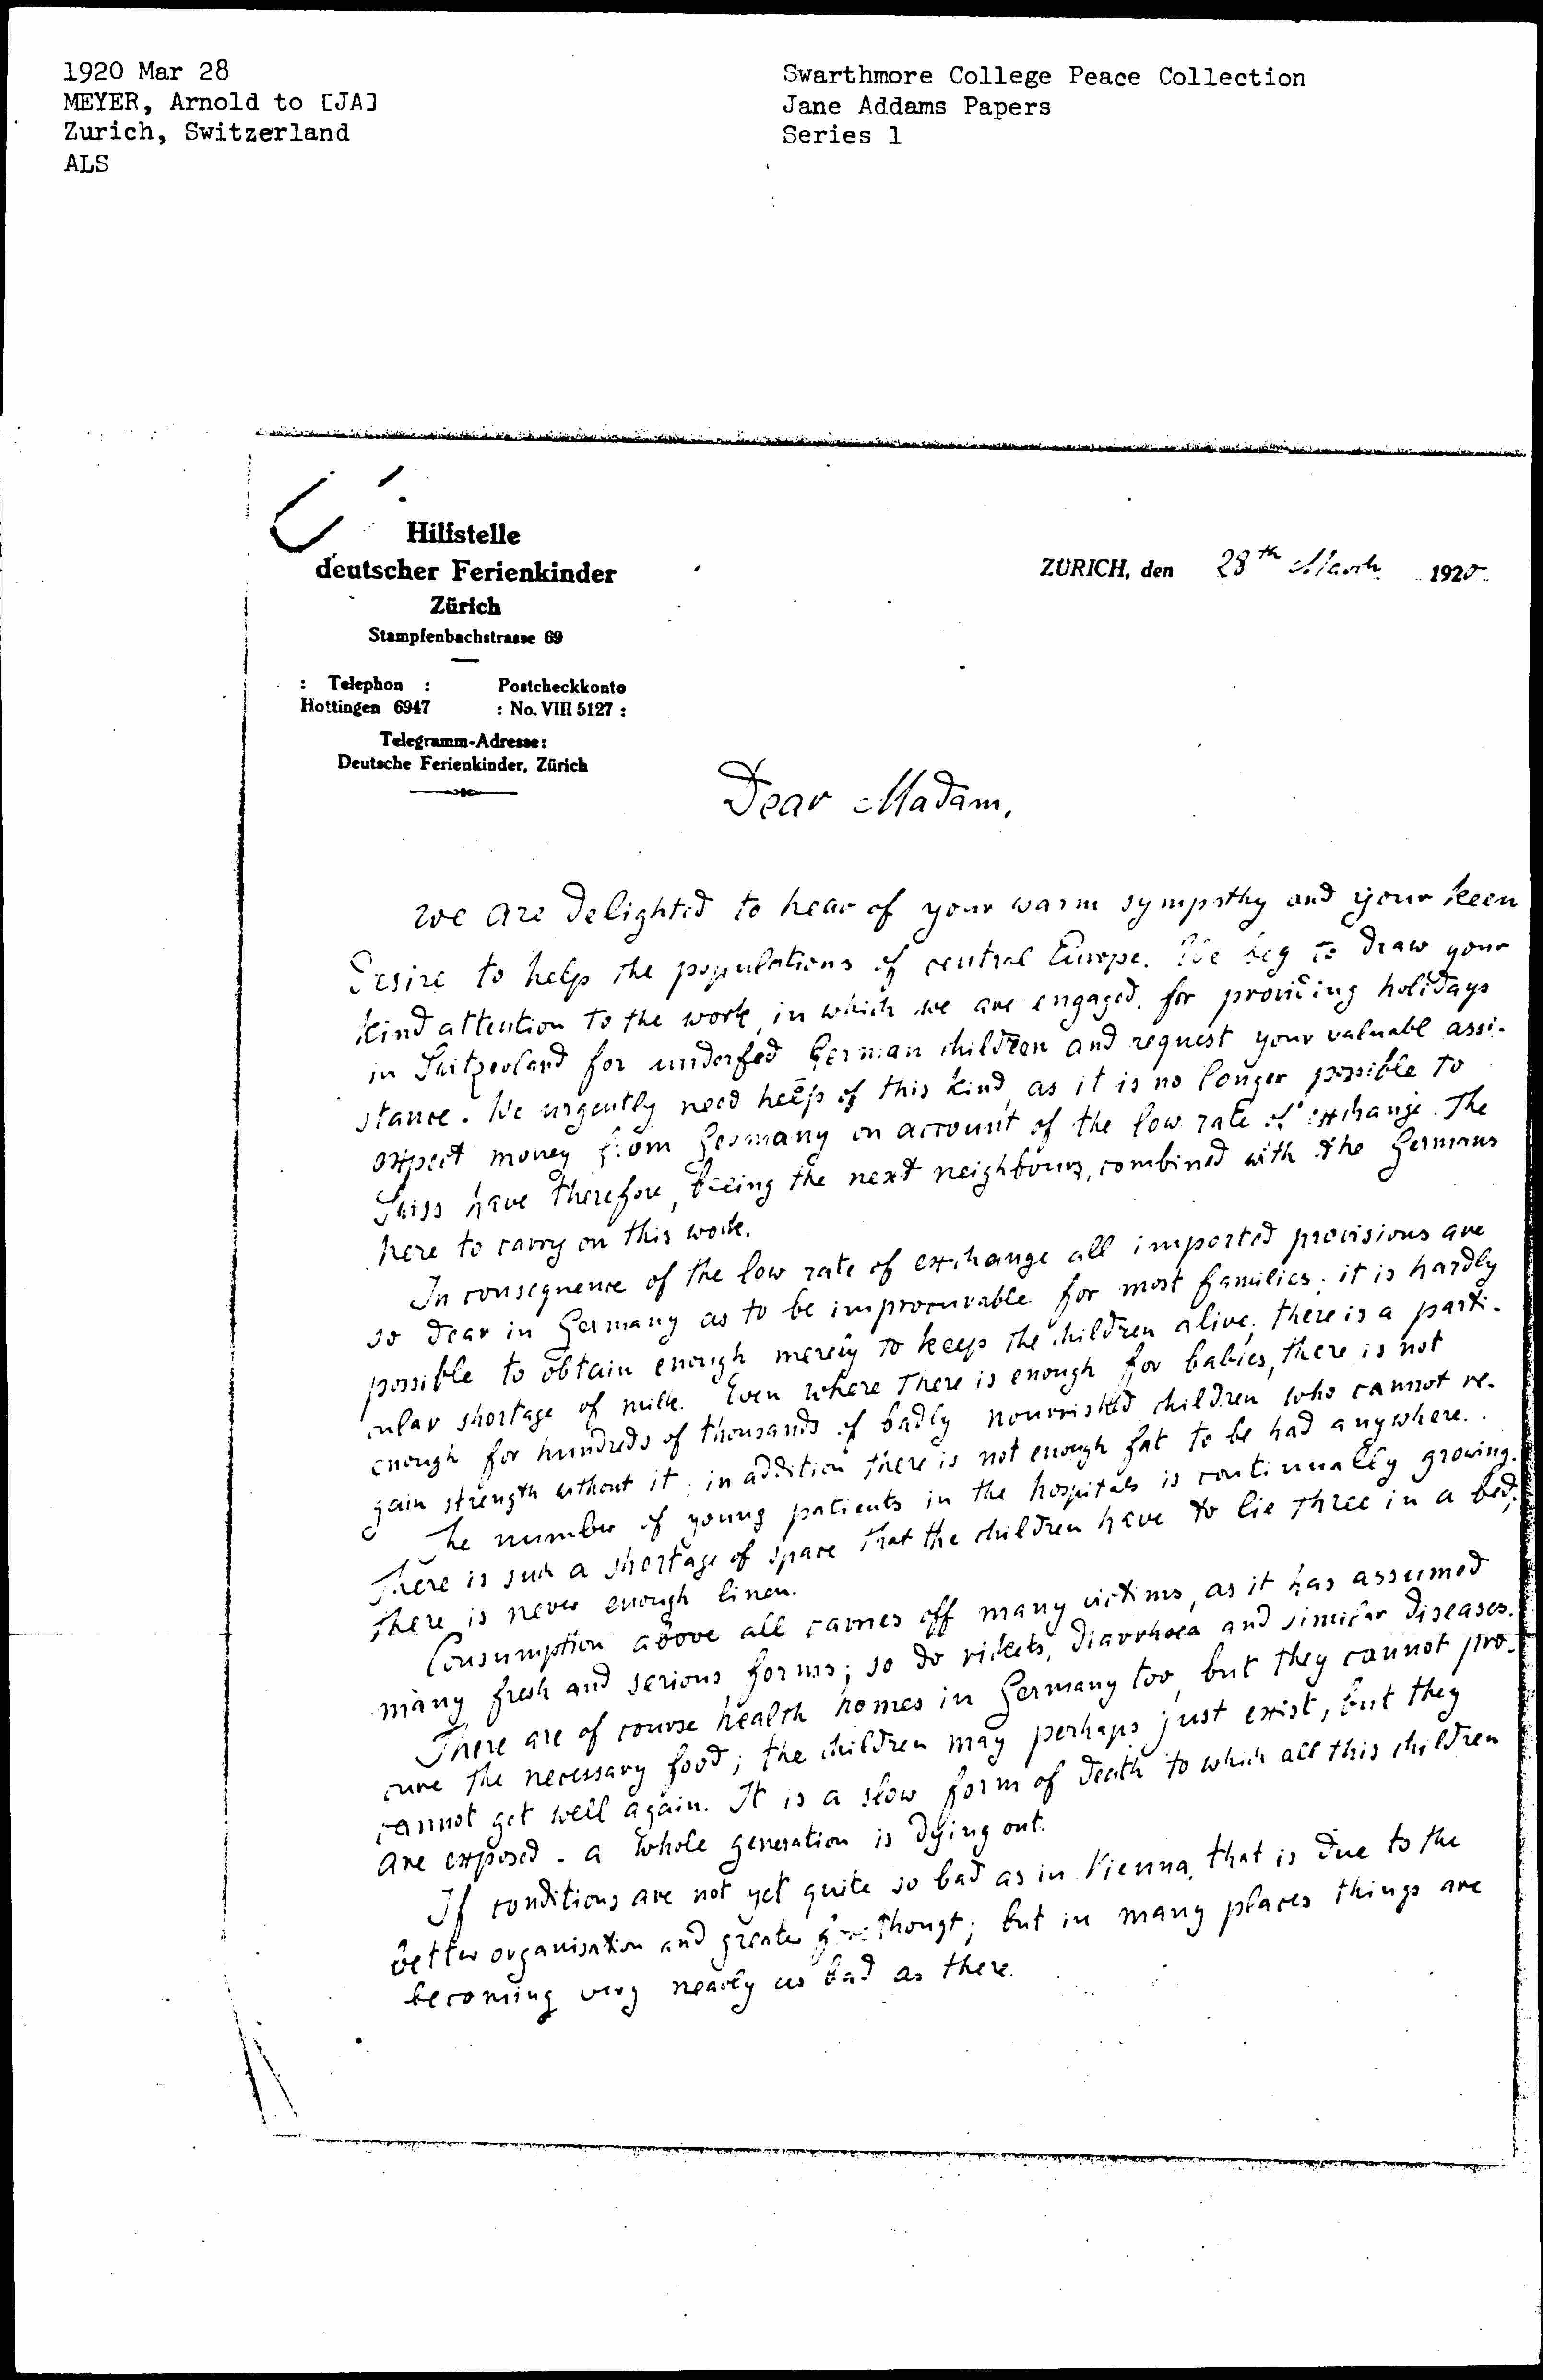 1920 Mar 28
MEYER, Arnold to [JA]
Zurich, Switzerland
ALS
Swarthmore College Peace Collection
Jane Addams Papers
Series 1
Hilfstelle
deutscher Ferienkinder
Zürich
Stampfenbachstrasse 69
: Telephon :
Hottingen 6947
Postcheckkonto
: No. VIII 5127 :
Telegramm-Adresse:
Deutsche Ferienkinder, Zürich
ZÜRICH, den 28th March 1920
Dear Madam,
we are delighted to hear of your warm sympathy and your keen
desire to help the populations of central Europe. We beg to draw your
kind attention to the work, in which we are engaged, for providing holidays
in Switzerland for underfed German children and request your valuabl assi-
stance. We urgently need help of this kind, as it is no longer possible to
expect money from Germany on account of the low rate of exchange. The
Swiss have therefore, being the next neighbours, combined with the Germans
here to carry on this work.
In consequence of the low rate of exchange all imported provisions are
so dear in Germany as to be improcurable for most families; it is hardly
possible to obtain enough merely to keep the children alive; there is a parti-
cular shortage of milk. Even where there is enough for babies, there is not
enough for hundreds of thousands of badly nourrished children who cannot re-
gain strength without it; in addition there is not enough fat to be had anywhere.
The number of young patients in the hospitals is continually growing.
There is such a shortage of space that the children have to lie three in a bed;
there is never enough linen.
Consumption above all carries off many victims, as it has assumed
many fresh and serious forms; so do rickets, diarrhoea and similar diseases.
There are of course health homes in Germany too, but they cannot pro-
cure the necessary food; the children may perhaps just exist, but they
cannot get well again. It is a slow form of death to which all this children
are exposed - a whole generation is dying out.
If conditions are not yet quite so bad as in Vienna, that is due to the
better organisation and greater forethougt; but in many places things are
becoming very nearly as bad as there.